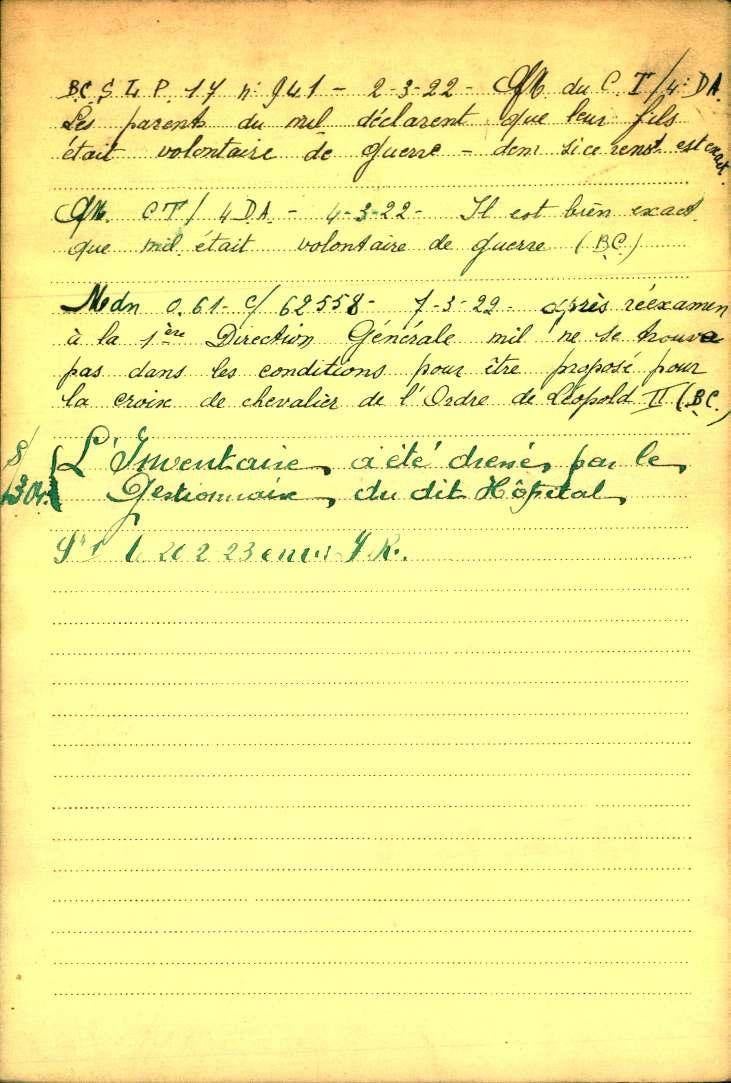 B.C. S L P. 17 n° 941 - 2-3-22 - QM. du C. T/4° D.A.
Les parents du mil déclarent que leur fils
était volontaire de guerre - dem si ce renst est exact.
QM. CT/4 D.A. - 4-3-22 - Il est bien exact
que mil. était volontaire de guerre (B.C.)
Mdn 0.61- C/62558- 7-3-22- après réexamen
à la 1ère Direction Générale mil ne se trouve
pas dans les conditions pour être proposé pour
la croix de chevalier de l'Ordre de Léopold II (B.C.)
L'Inventaire, a été dressé, par le
Gestionnaire, du dit Hôpital,
2 23